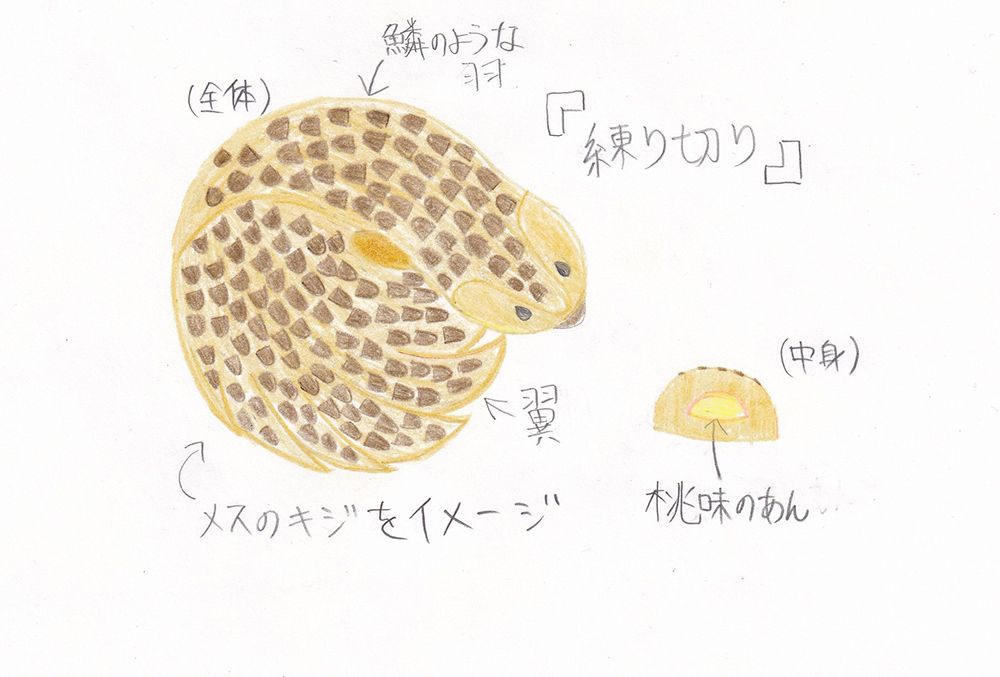 鱗のような
羽
(全体)
『練り切り』
(中身)
翼
桃味のあん
メスのキジをイメージ